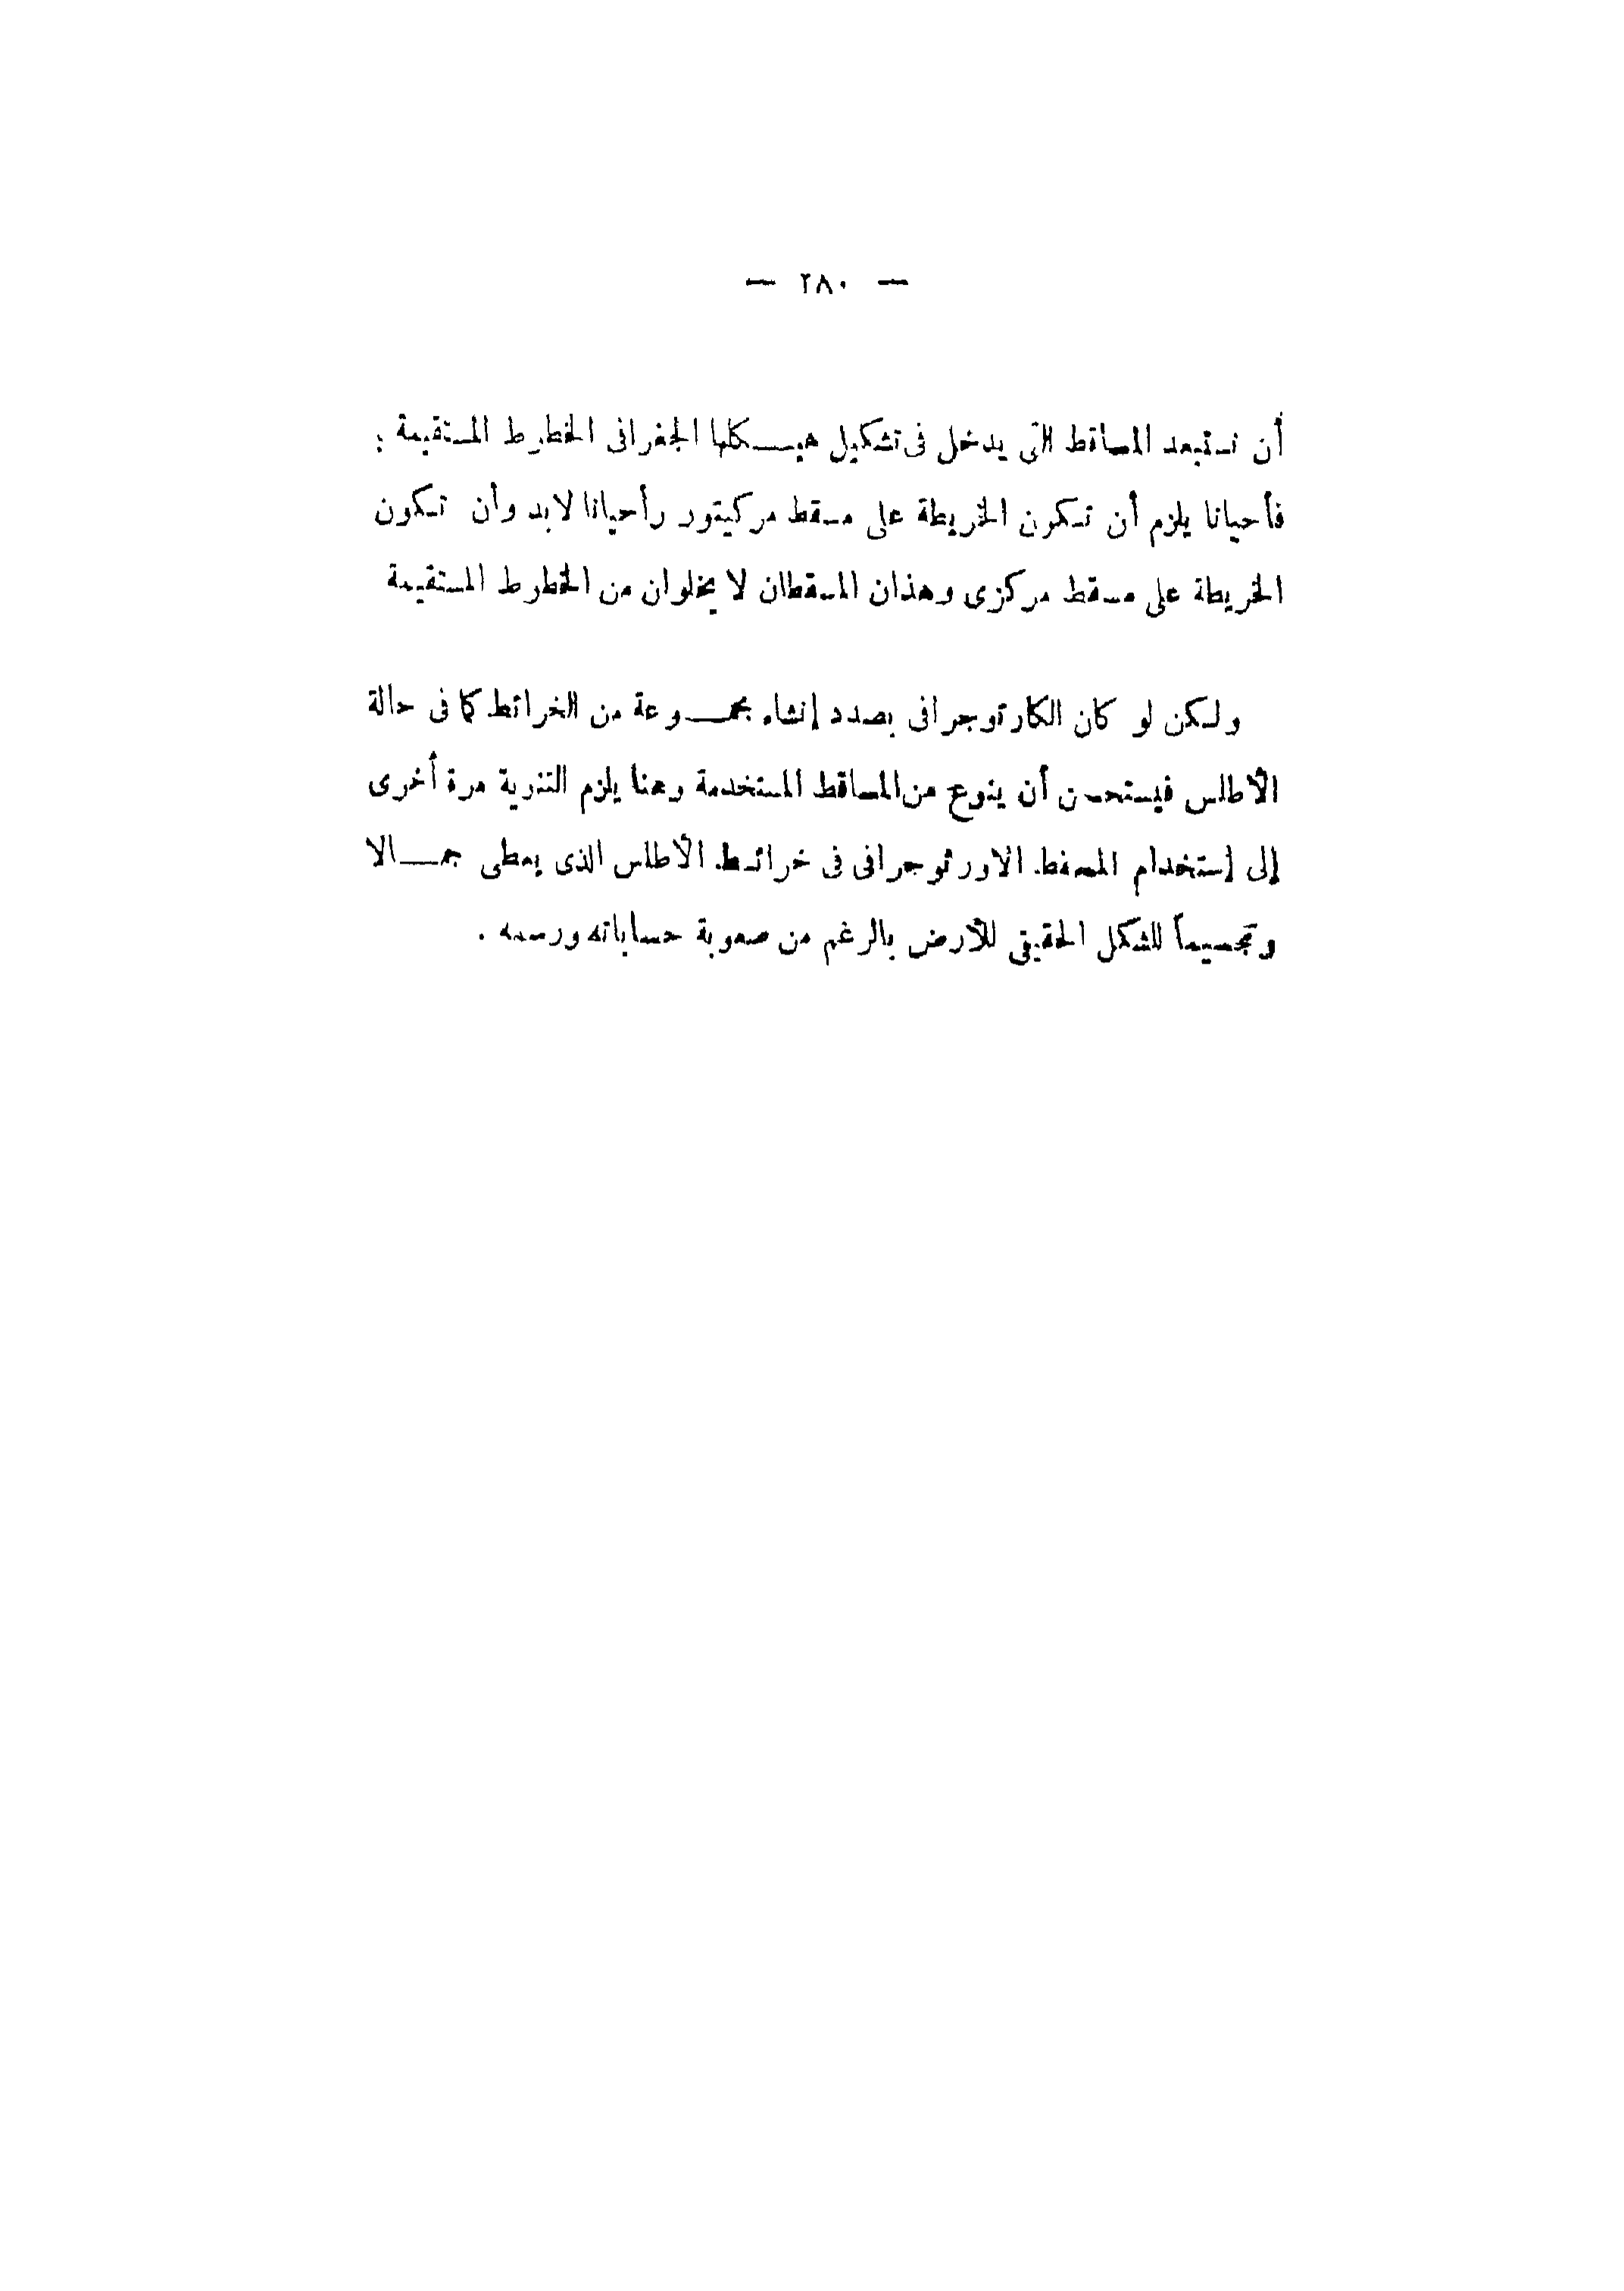 — ٢٨٠ —
أن نستبعد المساقط التى يدخل فى تشكيل هيكلها الجغرافى الخطوط المستقيمة ;
فأحيانا يلزم أن تكون الخريطة على مسقط مركيتور وأحيانا لابد وأن تكون
الخريطة على مسقط مركزى وهذان المسقطان لا يخلوان من الخطوط المستقيمة
ولكن لو كان الكارتوجرافى بصدد إنشاء مجموعة من الخرائط كما فى حالة
الأطلس فيستحسن أن ينوع من المساقط المستخدمة وهنا يلزم التنويه مرة أخرى
إلى إستخدام المسقط الاورثوجرافى فى خرائط الأطلس الذى يعطى جمالا
وتجسيماً للشكل الحقيقى للأرض بالرغم من صعوبة حساباته ورسمه .